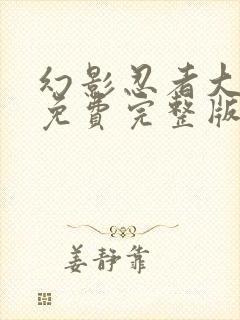 幻影忍者大
免费完整版
姜静靠